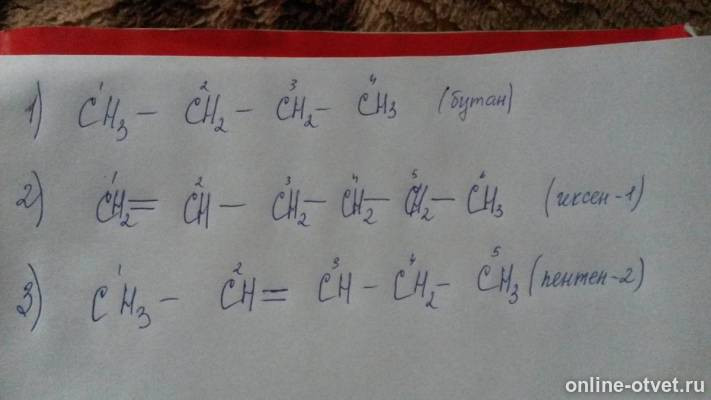 1) CH₃ – CH₂ – CH₂ – CH₃ (бутан)
2) CH₂ = CH – CH₂ – CH₂ – CH₂ – CH₃ (гексен-1)
3) CH₃ – CH = CH – CH₂ – CH₃ (пентен-2)
online-otvet.ru